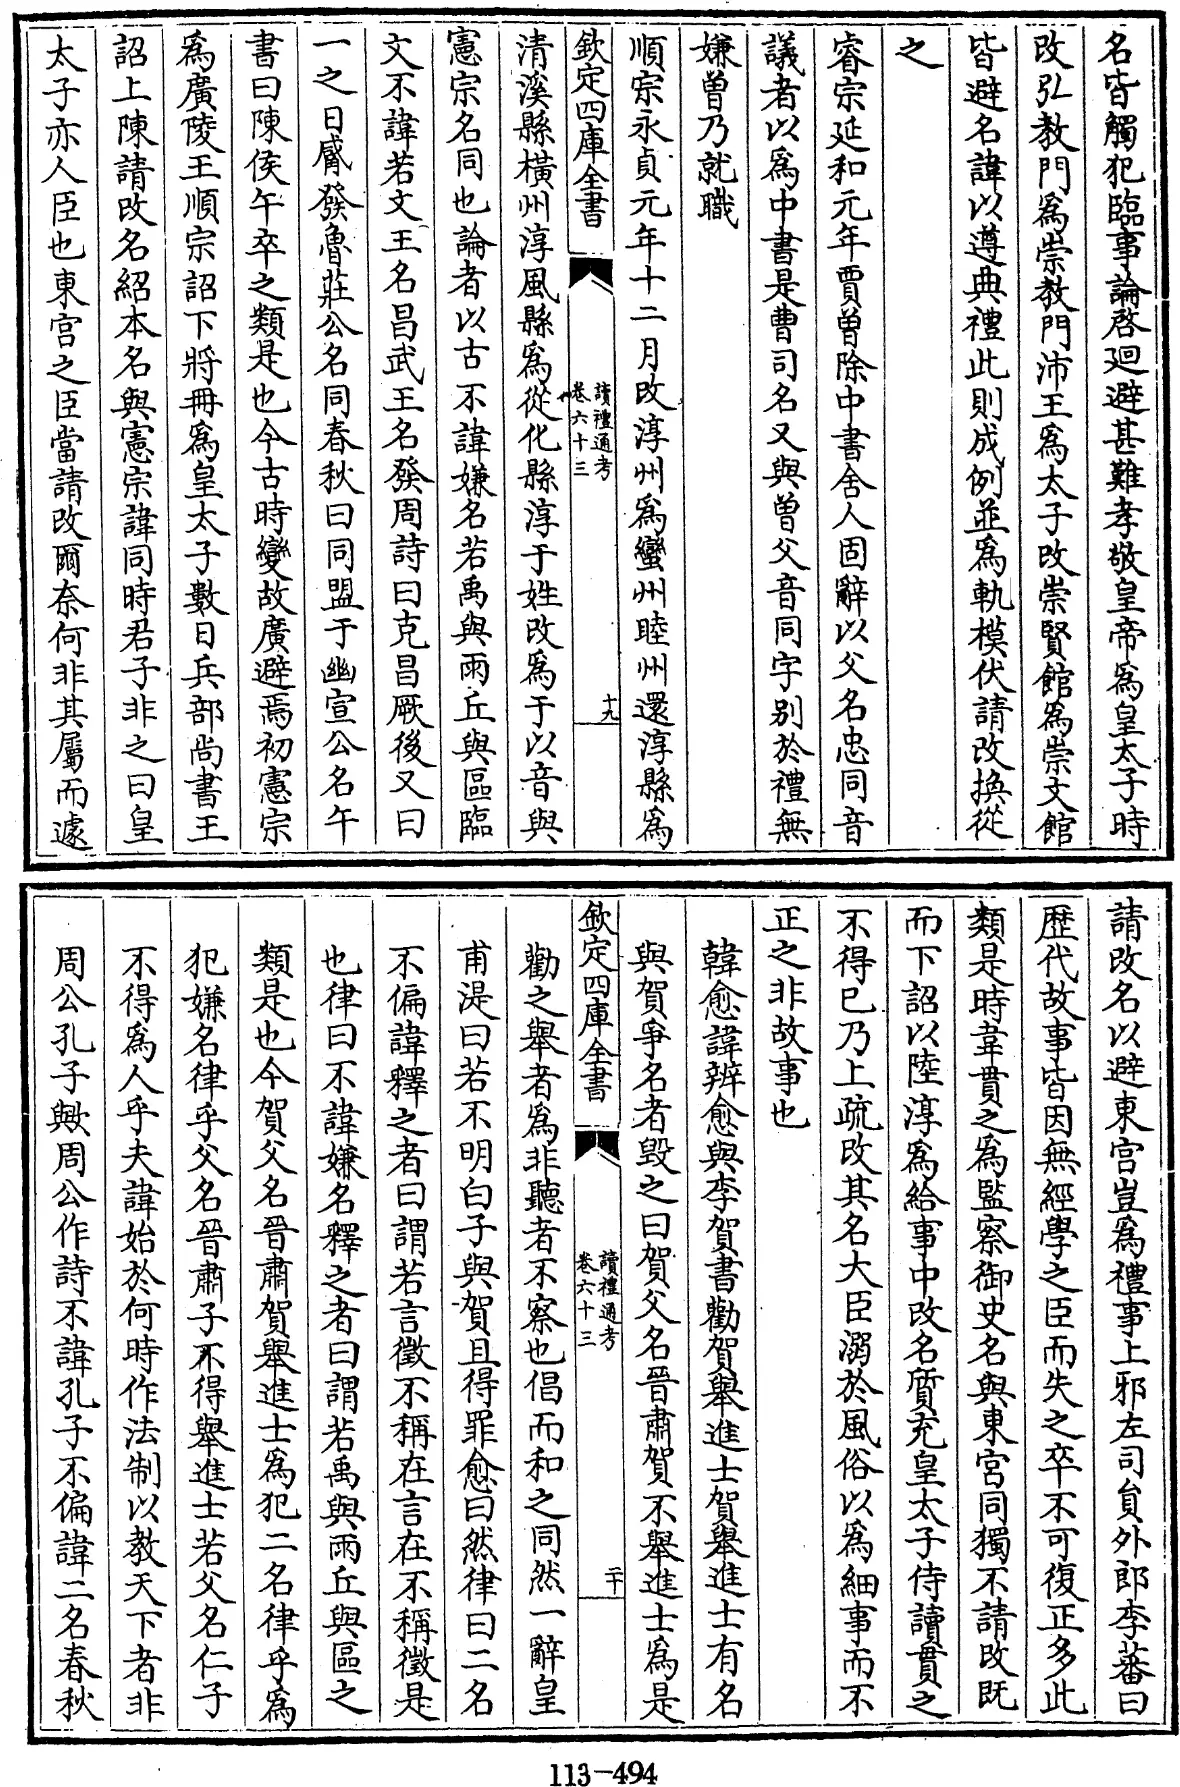 名皆觸犯臨事論啓迴避甚難孝敬皇帝爲皇太子時
改弘教門爲崇教門沛王爲太子改崇賢館爲崇文館
皆避名諱以遵典禮此則成例並爲軌模伏請改換從
之
睿宗延和元年賈曾除中書舍人固辭以父名忠同音
議者以爲中書是曹司名又與曾父音同字别於禮無
嫌曾乃就職
順宗永貞元年十二月改淳州爲蠻州睦州還淳縣爲
欽定四庫全書
讀禮通考
卷六十三
十九
清溪縣橫州淳風縣爲從化縣淳于姓改爲于以音與
憲宗名同也論者以古不諱嫌名若禹與雨丘與區臨
文不諱若文王名昌武王名發周詩曰克昌厥後又曰
一之日觱發魯莊公名同春秋曰同盟于幽宣公名午
書曰陳侯午卒之類是也今古時變故廣避焉初憲宗
爲廣陵王順宗詔下將冊爲皇太子數日兵部尚書王
詔上陳請改名紹本名與憲宗諱同時君子非之曰皇
太子亦人臣也東宫之臣當請改爾奈何非其屬而遽
請改名以避東宫豈爲禮事上邪左司貟外郎李蕃曰
歴代故事皆因無經學之臣而失之卒不可復正多此
類是時韋貫之爲監察御史名與東宫同獨不請改既
而下詔以陸淳爲給事中改名質充皇太子侍讀貫之
不得已乃上疏改其名大臣溺於風俗以爲細事而不
正之非故事也
韓愈諱辨愈與李賀書勸賀舉進士賀舉進士有名
與賀爭名者毁之曰賀父名晉肅賀不舉進士爲是
欽定四庫全書
讀禮通考
卷六十三
二十
勸之舉者爲非聽者不察也倡而和之同然一辭皇
甫湜曰若不明白子與賀且得罪愈曰然律曰二名
不偏諱釋之者曰謂若言徵不稱在言在不稱徵是
也律曰不諱嫌名釋之者曰謂若禹與雨丘與區之
類是也今賀父名晉肅賀舉進士爲犯二名律乎爲
犯嫌名律乎父名晉肅子不得舉進士若父名仁子
不得爲人乎夫諱始於何時作法制以教天下者非
周公孔子歟周公作詩不諱孔子不偏諱二名春秋
113-494